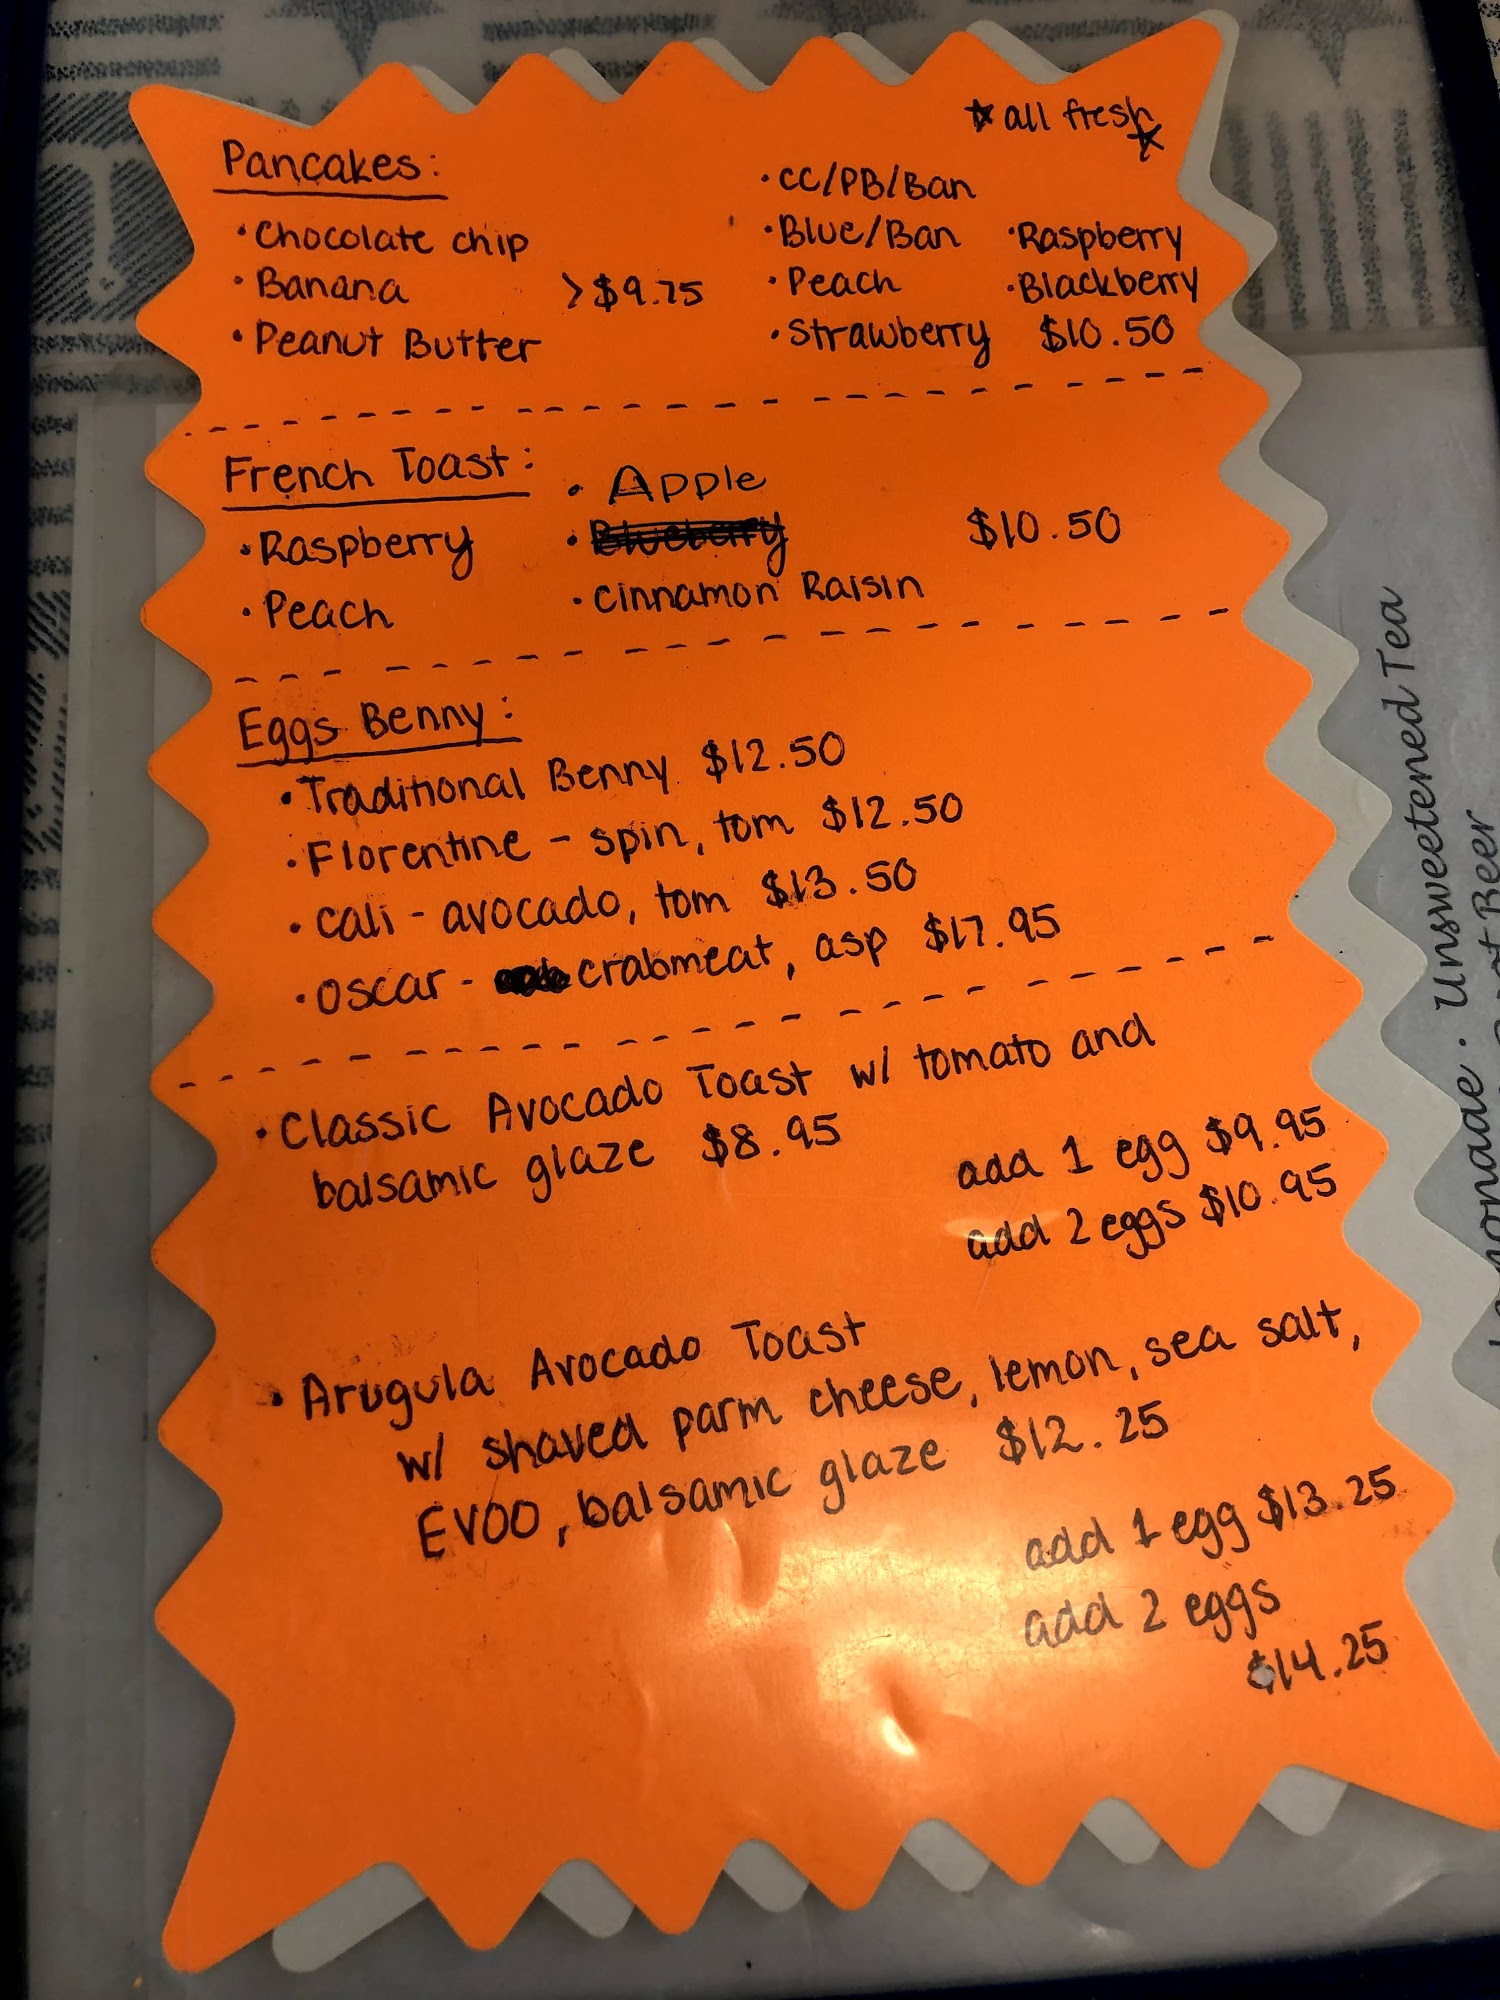 * all fresh *
Pancakes:
• Chocolate chip
• Banana >$9.75
• Peanut Butter
• CC/PB/Ban
• Blue/Ban • Raspberry
• Peach • Blackberry
• Strawberry $10.50
French Toast:
• Raspberry
• Peach
• Apple
• Blueberry
• Cinnamon Raisin
$10.50
Eggs Benny:
• Traditional Benny $12.50
• Florentine - spin, tom $12.50
• Cali - avocado, tom $13.50
• Oscar - crabmeat, asp $17.95
• Classic Avocado Toast w/ tomato and
balsamic glaze $8.95
add 1 egg $9.95
add 2 eggs $10.95
• Arugula Avocado Toast
w/ shaved parm cheese, lemon, sea salt,
EVOO, balsamic glaze $12.25
add 1 egg $13.25
add 2 eggs
$14.25
· Unsweetened Tea
Beer